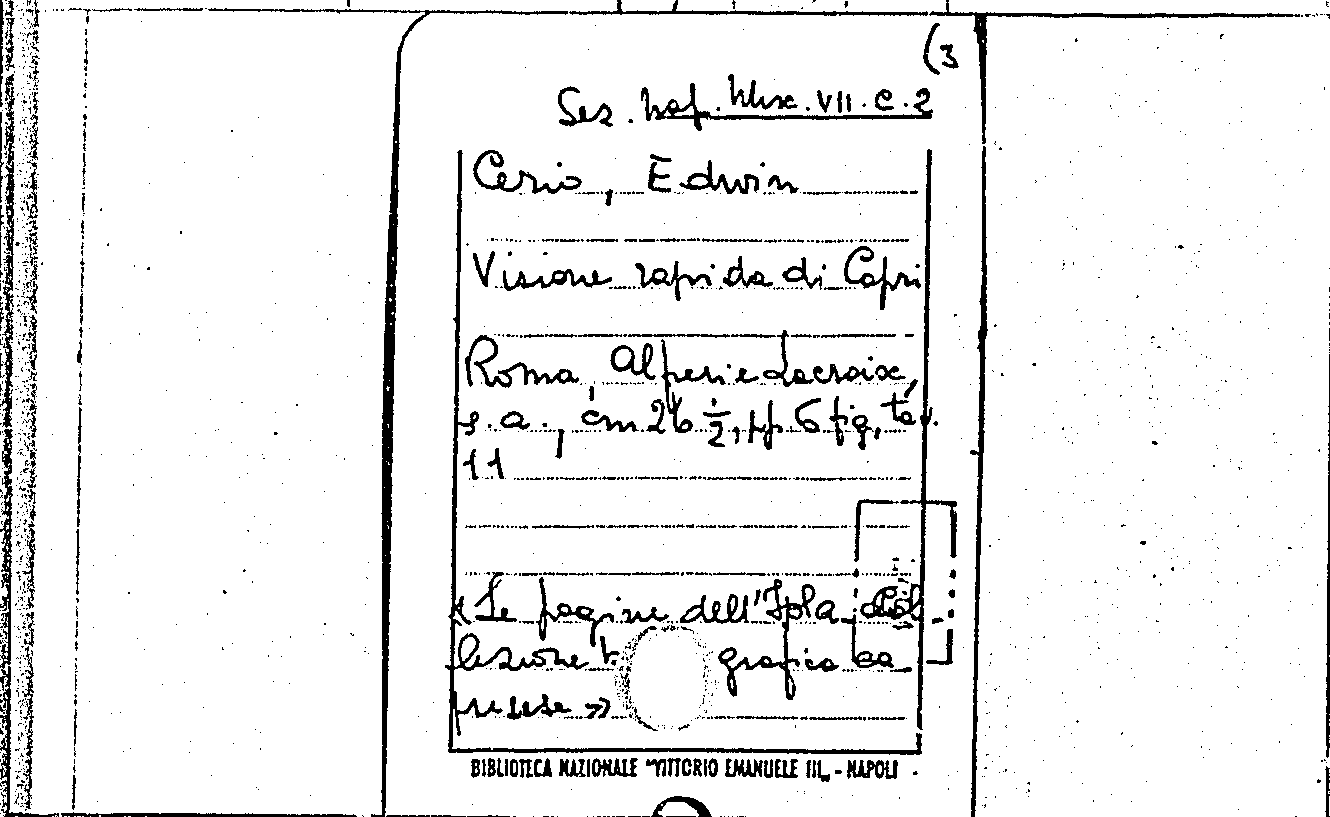 (3
Sez. Nap. Misc. VII. C. 2
Cerio, Edwin
Visione rapida di Capri
Roma, Alfieri e Lacroix,
s.a., cm 26 1/2, pp 6 fig, tav.
11
« Le pagine dell'Isola
lezione grafica ca
prese »
BIBLIOTECA NAZIONALE "VITTORIO EMANUELE III„ - NAPOLI